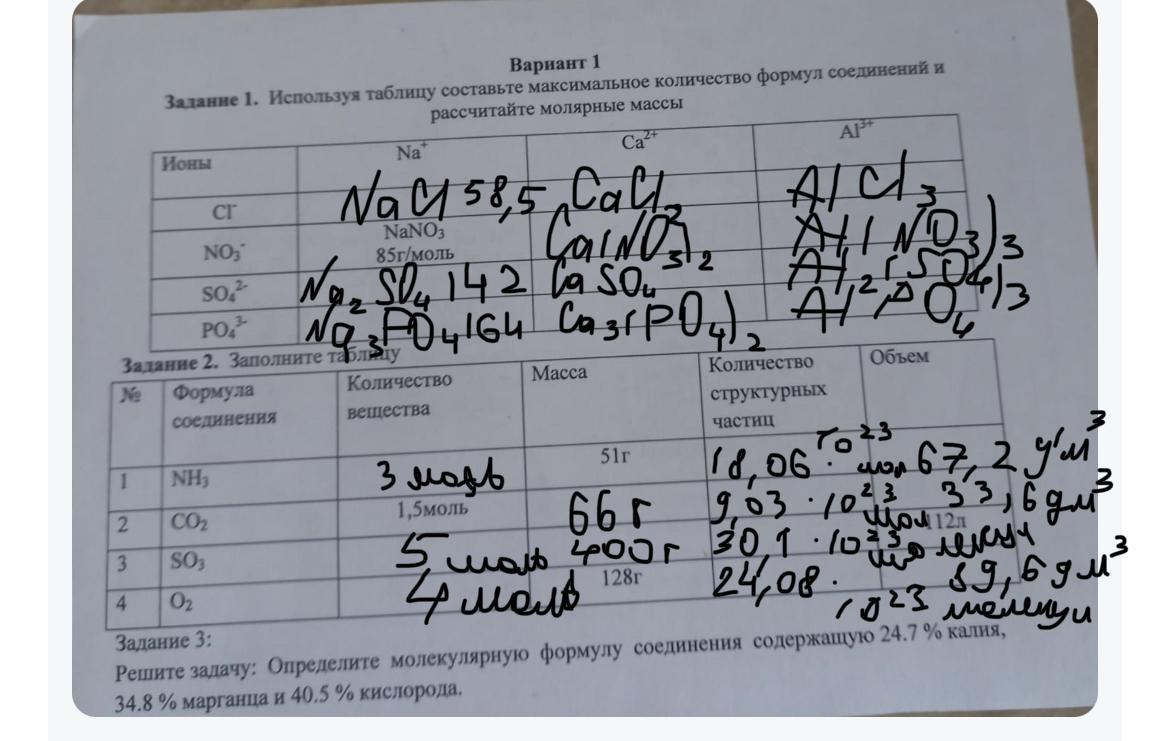 Вариант 1
Задание 1. Используя таблицу составьте максимальное количество формул соединений и
рассчитайте молярные массы
Ионы Na⁺ Ca²⁺ Al³⁺
Cl⁻ NaCl 58,5 CaCl₂ AlCl₃
NO₃⁻ NaNO₃ 85г/моль Ca(NO₃)₂ Al(NO₃)₃
SO₄²⁻ Na₂SO₄ 142 CaSO₄ Al₂(SO₄)₃
PO₄³⁻ Na₃PO₄ 164 Ca₃(PO₄)₂ AlPO₄
Задание 2. Заполните таблицу
№ Формула соединения Количество вещества Масса Количество структурных частиц Объем
1 NH₃ 3 моль 51г 18,06 · 10²³ мол 67,2 дм³
2 CO₂ 1,5моль 66 г 9,03 · 10²³ мол 33,6 дм³
3 SO₃ 5 моль 400г 30,1 · 10²³ молекул 112л
4 O₂ 4 моль 128г 24,08 · 10²³ молекул 89,6 дм³
Задание 3:
Решите задачу: Определите молекулярную формулу соединения содержащую 24.7 % калия,
34.8 % марганца и 40.5 % кислорода.